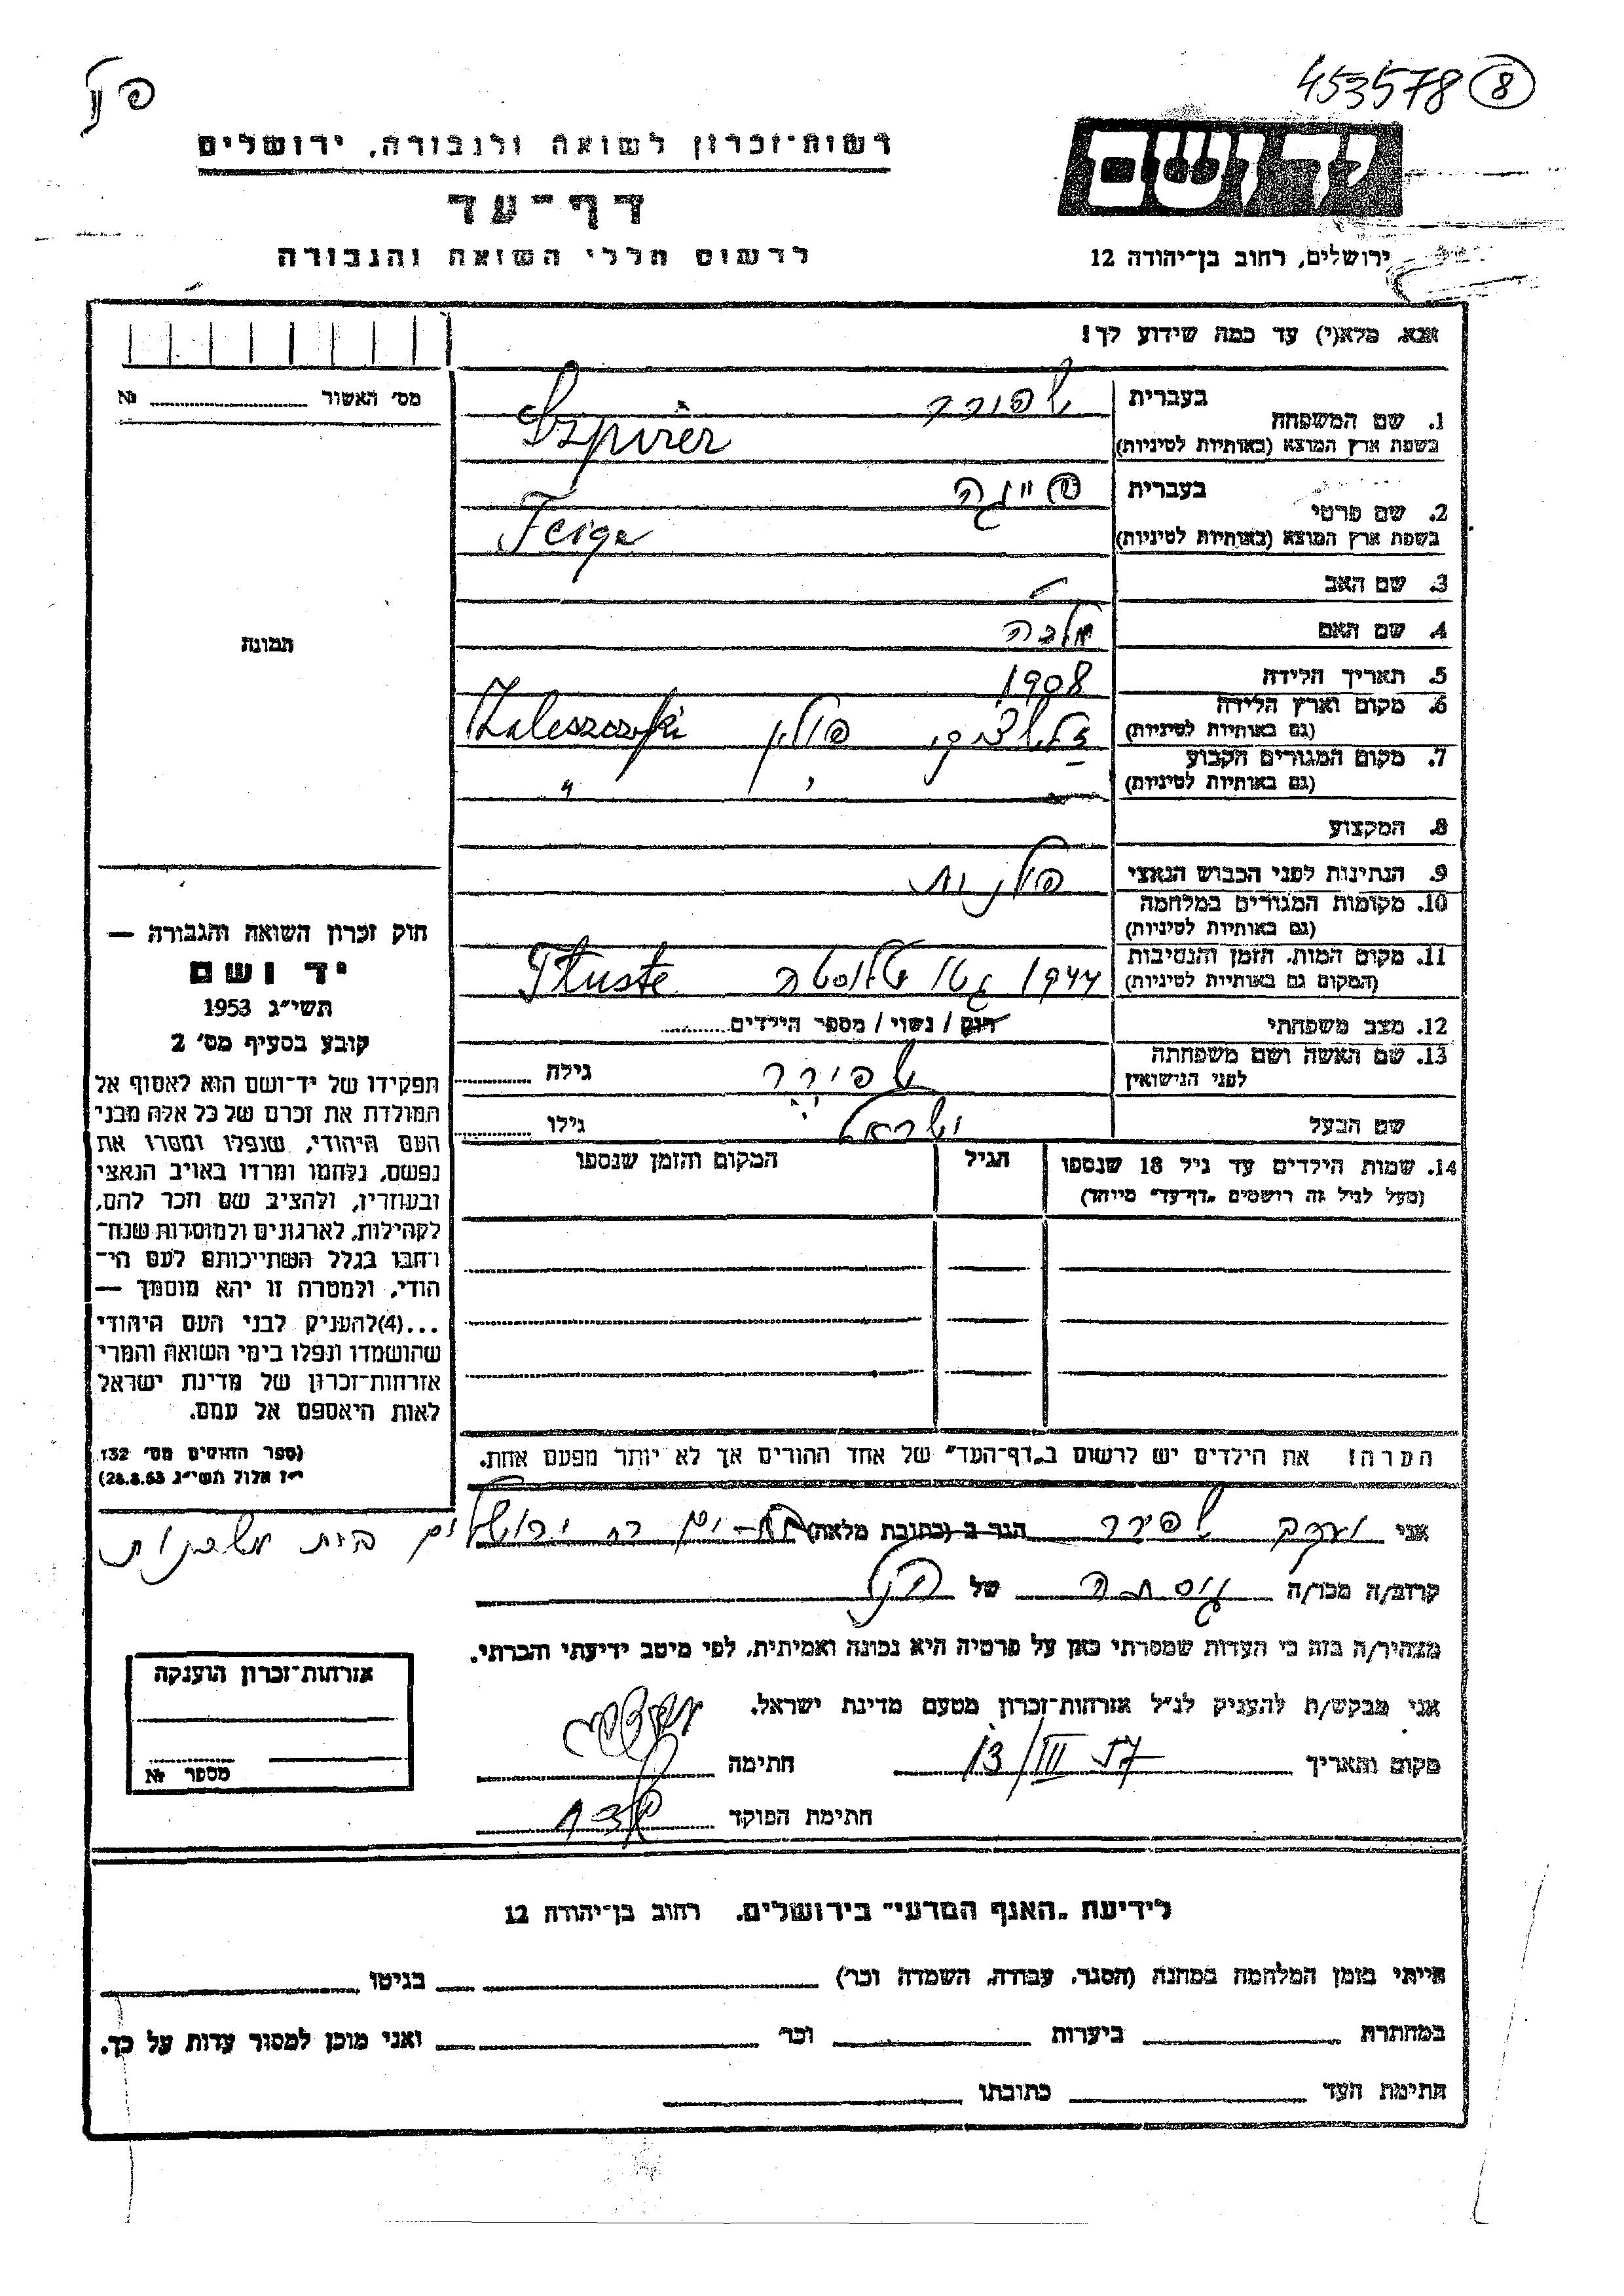 453578 (8)
יד ושם
רשות־זכרון לשואה ולגבורה, ירושלים
דף־עד
לרשום חללי השואה והגבורה
ירושלים, רחוב בן־יהודה 12
אנא, מלא(י) עד כמה שידוע לך!
מס׳ האשור № 
1. שם המשפחה
בעברית שפירר
בשפת ארץ המוצא (באותיות לטיניות) Szpirer
2. שם פרטי
בעברית פייגה
בשפת ארץ המוצא (באותיות לטיניות) Feige
3. שם האב
4. שם האם מלכה
5. תאריך הלידה 1908
6. מקום וארץ הלידה
(גם באותיות לטיניות) זלשצקי, פולין Zaleszczyki
7. מקום המגורים הקבוע
(גם באותיות לטיניות) "
8. המקצוע
9. הנתינות לפני הכבוש הנאצי פולנית
10. מקומות המגורים במלחמה
(גם באותיות לטיניות)
11. מקום המות, הזמן והנסיבות
(המקום גם באותיות לטיניות) 1944 גטו טלוסטה Tluste
12. מצב משפחתי רווק / נשוי / מספר הילדים
13. שם האשה ושם משפחתה
לפני הנישואין שפירר גילה
שם הבעל ישראל גילו
14. שמות הילדים עד גיל 18 שנספו הגיל המקום והזמן שנספו
(מעל לגיל זה רושמים "דף־עד" מיוחד)
תמונה
חוק זכרון השואה והגבורה —
יד ושם
תשי״ג 1953
קובע בסעיף מס׳ 2
תפקידו של יד־ושם הוא לאסוף אל
המולדת את זכרם של כל אלה מבני
העם היהודי, שנפלו ומסרו את
נפשם, נלחמו ומרדו באויב הנאצי
ובעוזריו, ולהציב שם וזכר להם,
לקהילות, לארגונים ולמוסדות שנח־
רבו בגלל השתייכותם לעם הי־
הודי, ולמטרה זו יהא מוסמך —
...(4) להעניק לבני העם היהודי
שהושמדו ונפלו בימי השואה והמרי
אזרחות־זכרון של מדינת ישראל
לאות היאספם אל עמם.
(ספר החוקים מס׳ 132
י״ז אלול תשי״ג 28.8.53)
הערה! את הילדים יש לרשום ב"דף־העד" של אחד ההורים אך לא יותר מפעם אחת.
אני שפירר הגר ב (כתובת מלאה) ירושלים בית
קרוב/ה מכר/ה גיסתה של
מצהיר/ה בזה כי העדות שמסרתי כאן על פרטיה היא נכונה ואמיתית, לפי מיטב ידיעתי והכרתי.
אני מבקש/ת להעניק לנ״ל אזרחות־זכרון מטעם מדינת ישראל.
מקום ותאריך 13/III 57 חתימה
חתימת הפוקד
אזרחות־זכרון הוענקה
מספר №
לידיעת "האגף המדעי" בירושלים, רחוב בן־יהודה 12
הייתי בזמן המלחמה במחנה (הסגר, עבודה, השמדה וכו׳) בגיטו
במחתרת ביערות וכו׳ ואני מוכן למסור עדות על כך.
חתימת העד כתובתו